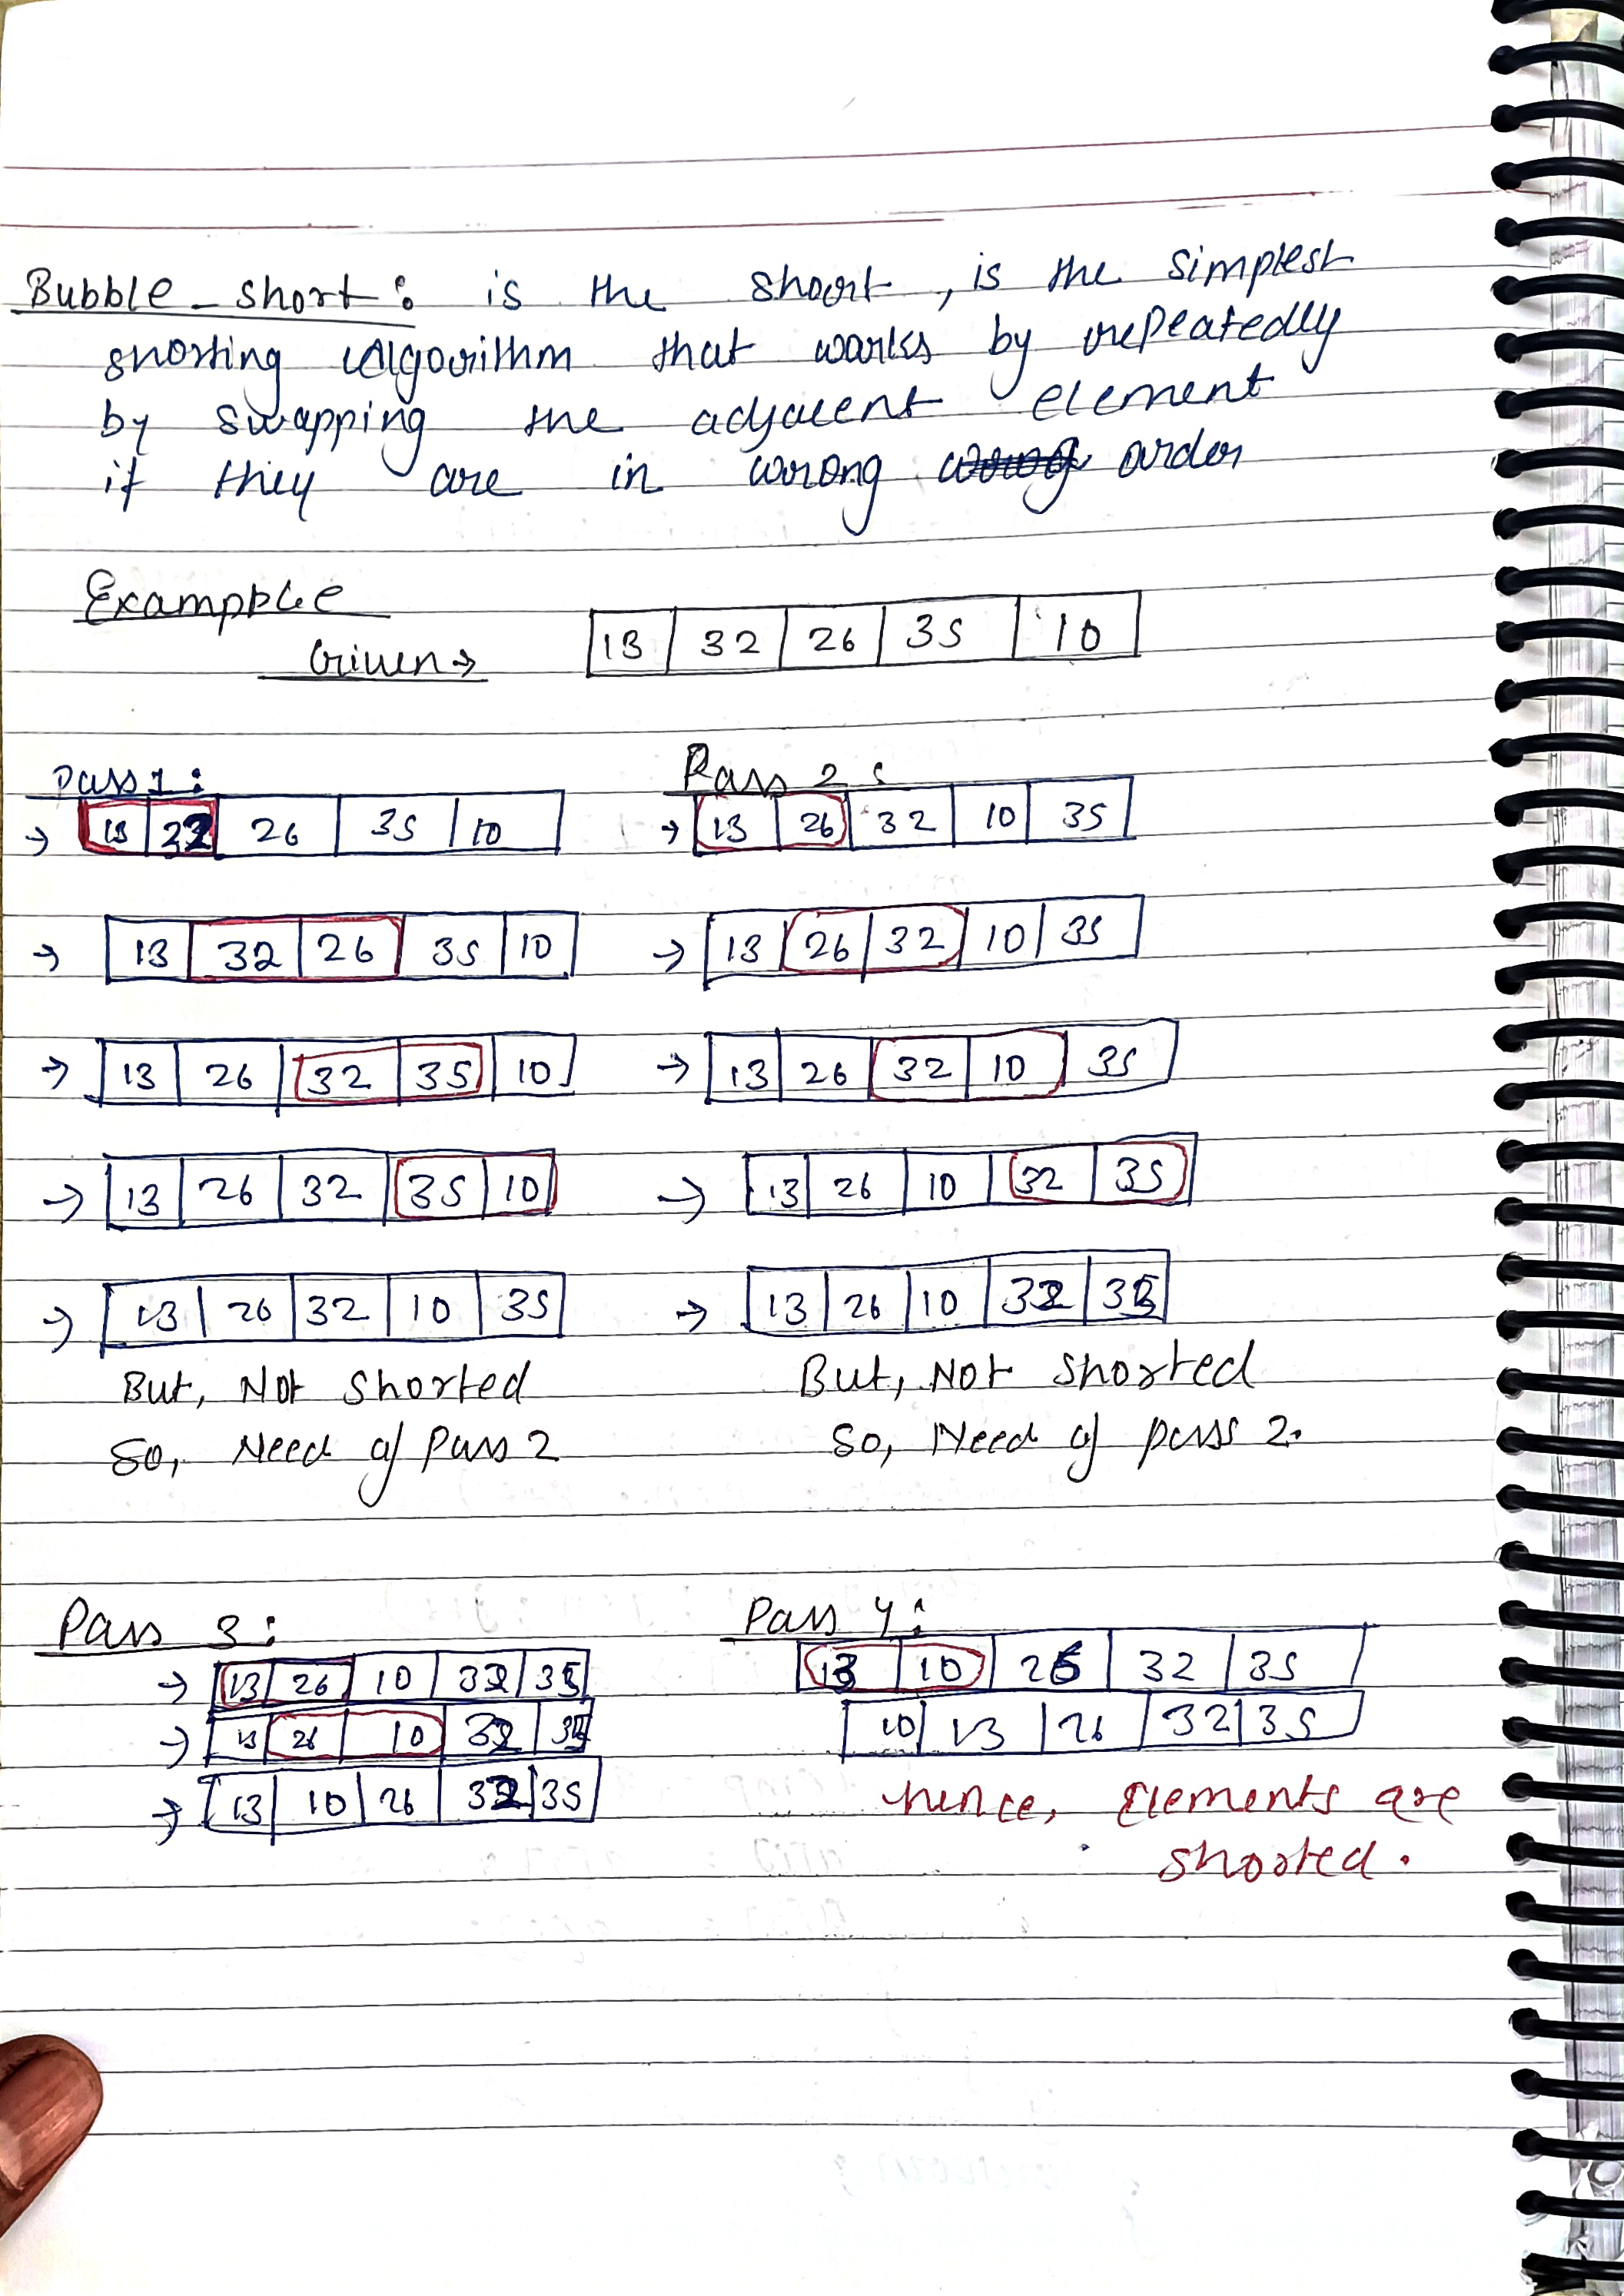 Bubble - short : is the short , is the simplest
shorting Algorithm that works by repeatedly
by swapping the adjacent element
if they are in wrong order
Exampple
Given → 13 32 26 35 10
Pass 1 :
→ 13 32 26 35 10
→ 13 32 26 35 10
→ 13 26 32 35 10
→ 13 26 32 35 10
→ 13 26 32 10 35
But, Not shorted
So, Need of Pass 2
Pass 2 :
→ 13 26 32 10 35
→ 13 26 32 10 35
→ 13 26 32 10 35
→ 13 26 10 32 35
→ 13 26 10 32 35
But, Not shorted
So, Need of pass 2.
Pass 3 :
→ 13 26 10 32 35
→ 13 26 10 32 35
→ 13 10 26 32 35
Pass 4 :
13 10 26 32 35
10 13 26 32 35
hence, Elements are
shorted .